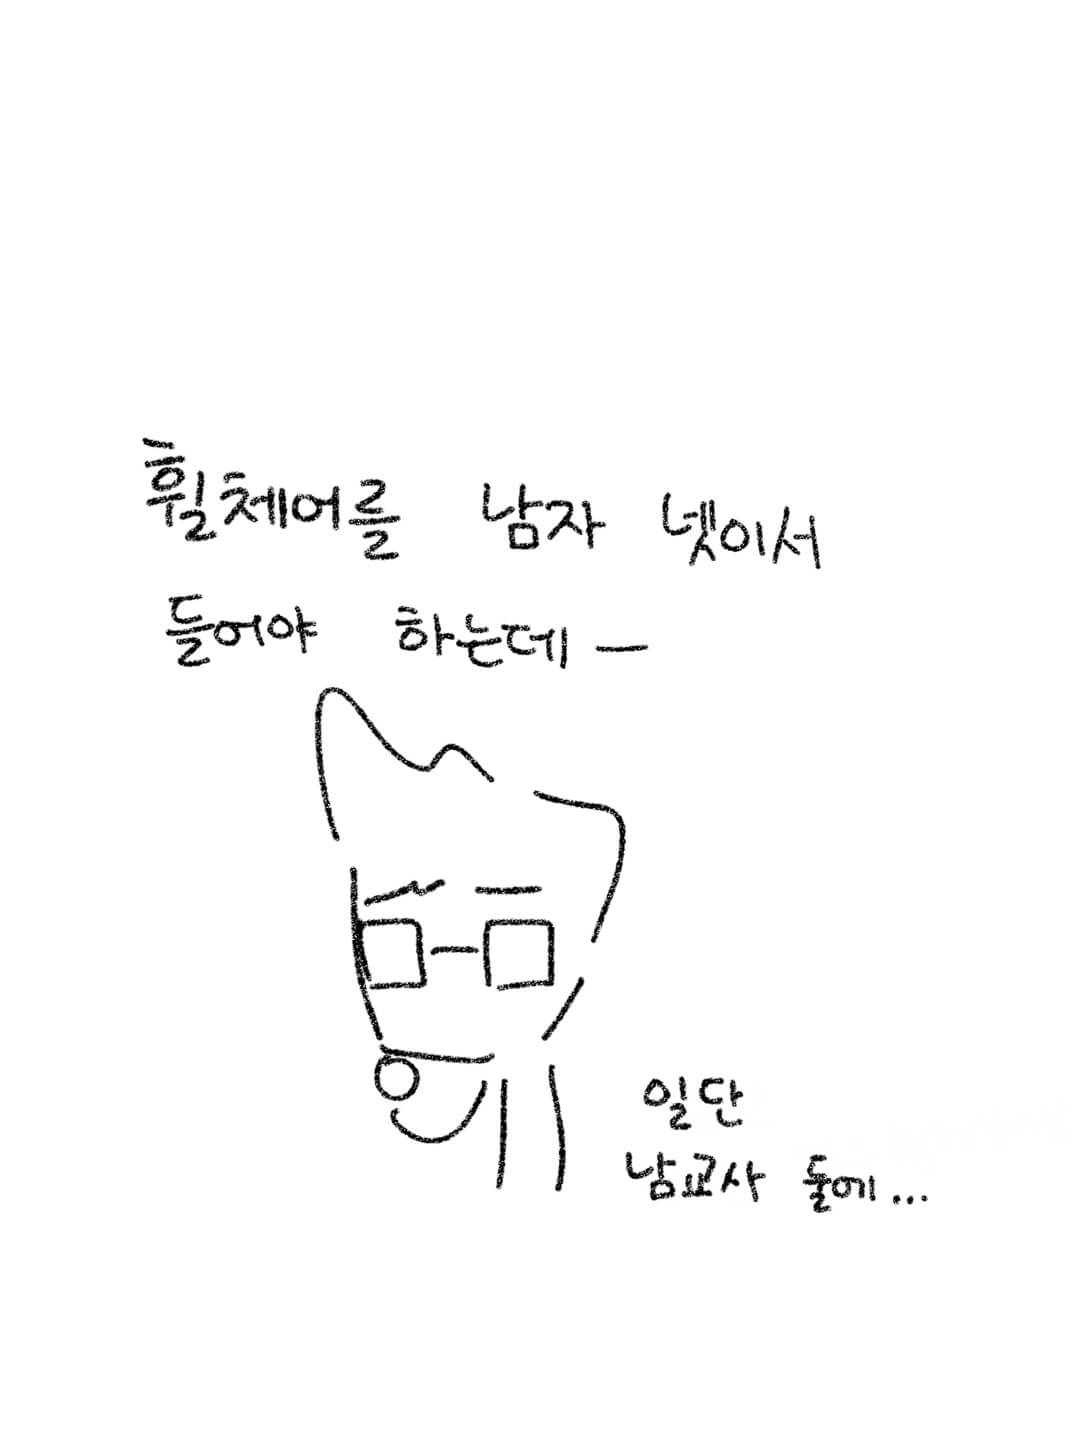 휠체어를 남자 넷이서
들어야 하는데 —
일단
남교사 둘에...